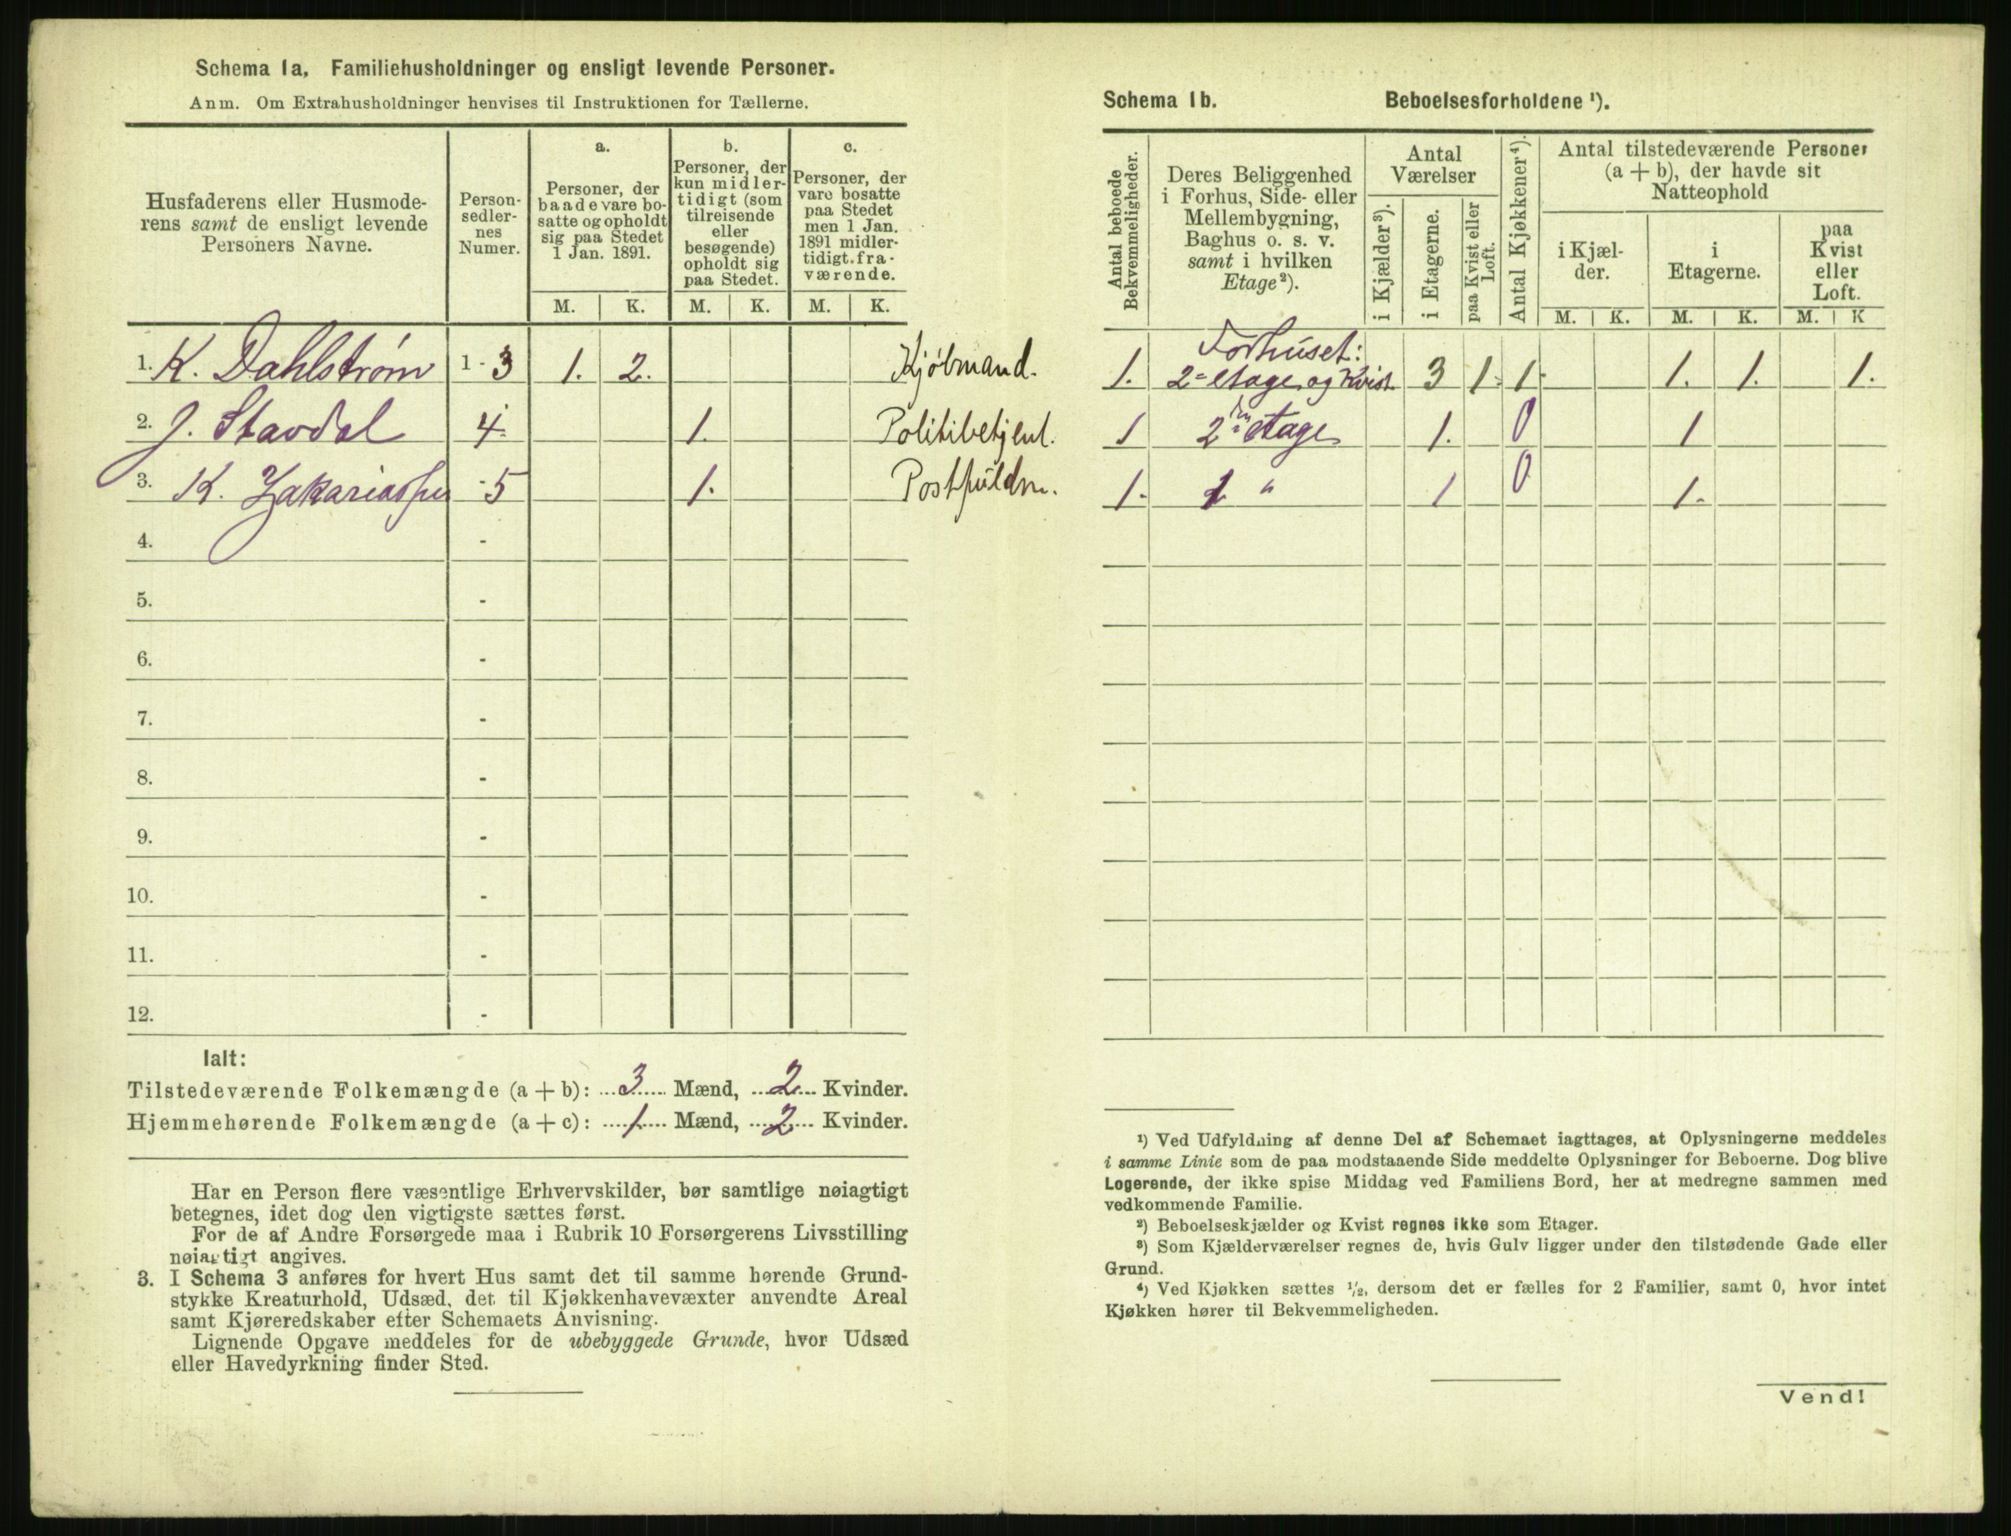 Schema 1a. Familiehusholdninger og ensligt levende Personer.
Anm. Om Extrahusholdninger henvises til Instruktionen for Tællerne.
Husfaderens eller Husmode-
rens samt de ensligt levende
Personers Navne.
Person-
sedler-
nes
Numer.
a.
Personer, der
baade vare bo-
satte og opholdt
sig paa Stedet
1 Jan. 1891.
b.
Personer, der
kun midler-
tidigt (som
tilreisende
eller
besøgende)
opholdt sig
paa Stedet.
c.
Personer, der
vare bosatte
paa Stedet
men 1 Jan.
1891 midler-
tidigt fra-
værende.
M. K. M. K. M. K.
1. K. Dahlstrøm 1-3 1. 2. Kjøbmand.
2. J. Stavdal 4- 1. Politibetjent.
3. K. Zakariassen -5 1. Postfuldm.
4. -
5. -
6. -
7. -
8. -
9. -
10. -
11. -
12. -
Ialt:
Tilstedeværende Folkemængde (a + b): 3 Mænd, 2 Kvinder.
Hjemmehørende Folkemængde (a + c): 1 Mænd, 2 Kvinder.
Har en Person flere væsentlige Erhvervskilder, bør samtlige nøiagtigt
betegnes, idet dog den vigtigste sættes først.
For de af Andre Forsørgede maa i Rubrik 10 Forsørgerens Livsstilling
nøiagtigt angives.
3. I Schema 3 anføres for hvert Hus samt det til samme hørende Grund-
stykke Kreaturhold, Udsæd, det til Kjøkkenhavevæxter anvendte Areal
samt Kjøreredskaber efter Schemaets Anvisning.
Lignende Opgave meddeles for de ubebyggede Grunde, hvor Udsæd
eller Havedyrkning finder Sted.
Schema 1b. Beboelsesforholdene ¹).
Antal beboede
Bekvemmeligheder.
Deres Beliggenhed
i Forhus, Side- eller
Mellembygning,
Baghus o. s. v.
samt i hvilken
Etage²).
Antal
Værelser
i Kjælder³).
i Etagerne.
paa Kvist eller
Loft.
Antal Kjøkkener⁴).
Antal tilstedeværende Personer
(a + b), der havde sit
Natteophold
i Kjæl-
der.
i
Etagerne.
paa
Kvist
eller
Loft.
M. K. M. K. M. K
Forhuset:
1. 2= etage og Kvist 3 1- 1- 1. 1. 1.
1 2den etage 1. 0 1
1. 1 " 1 0 1.
¹) Ved Udfyldning af denne Del af Schemaet iagttages, at Oplysningerne meddeles
i samme Linie som de paa modstaaende Side meddelte Oplysninger for Beboerne. Dog blive
Logerende, der ikke spise Middag ved Familiens Bord, her at medregne sammen med
vedkommende Familie.
²) Beboelseskjælder og Kvist regnes ikke som Etager.
³) Som Kjælderværelser regnes de, hvis Gulv ligger under den tilstødende Gade eller
Grund.
⁴) Ved Kjøkken sættes ½, dersom det er fælles for 2 Familier, samt 0, hvor intet
Kjøkken hører til Bekvemmeligheden.
Vend!